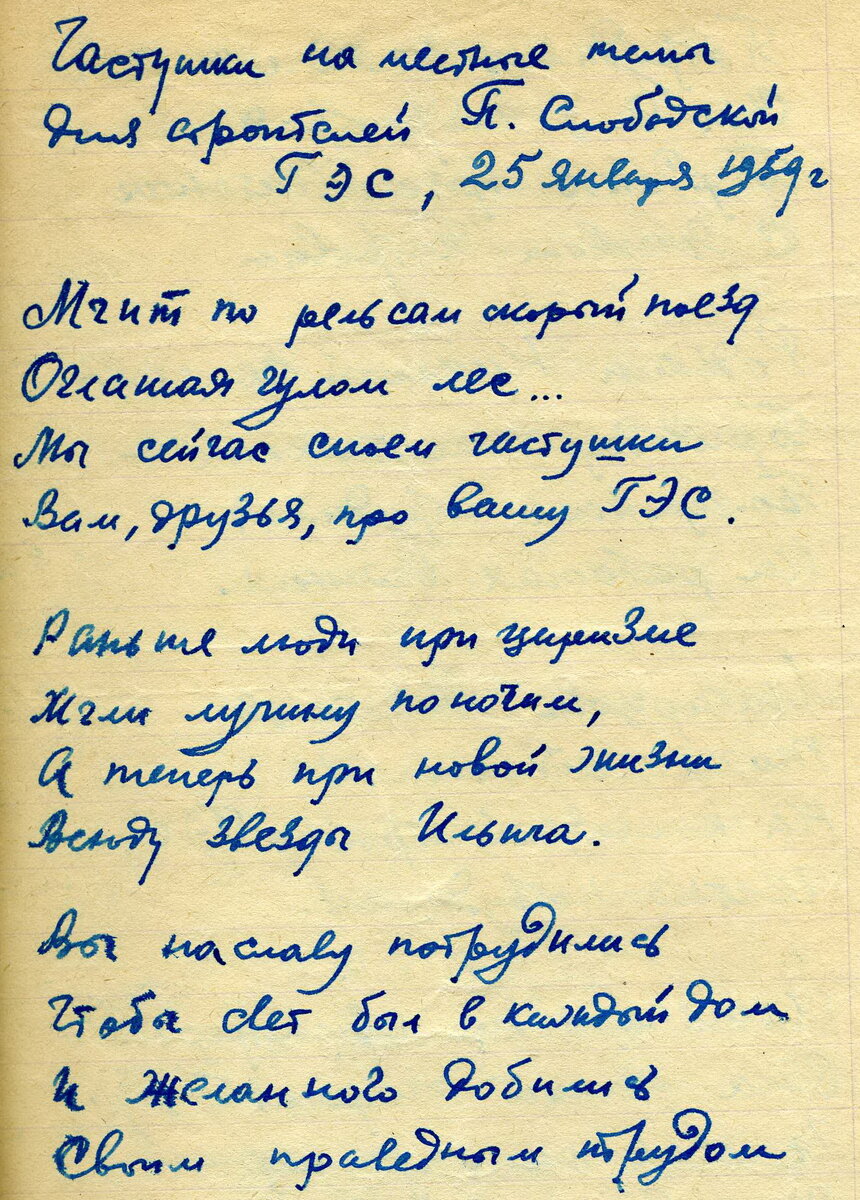 Частушки на местные темы
для строителей П. Слободской
ГЭС, 25 января 1959 г
Мчит по рельсам скорый поезд
Оглашая гулом лес...
Мы сейчас споем частушки
Вам, друзья, про вашу ГЭС.
Раньше люди при царизме
Жгли лучину по ночам,
А теперь при новой жизни
Всюду звезды Ильича.
Вы на славу потрудились
Чтобы свет был в каждый дом
И желанного добились
Своим праведным трудом